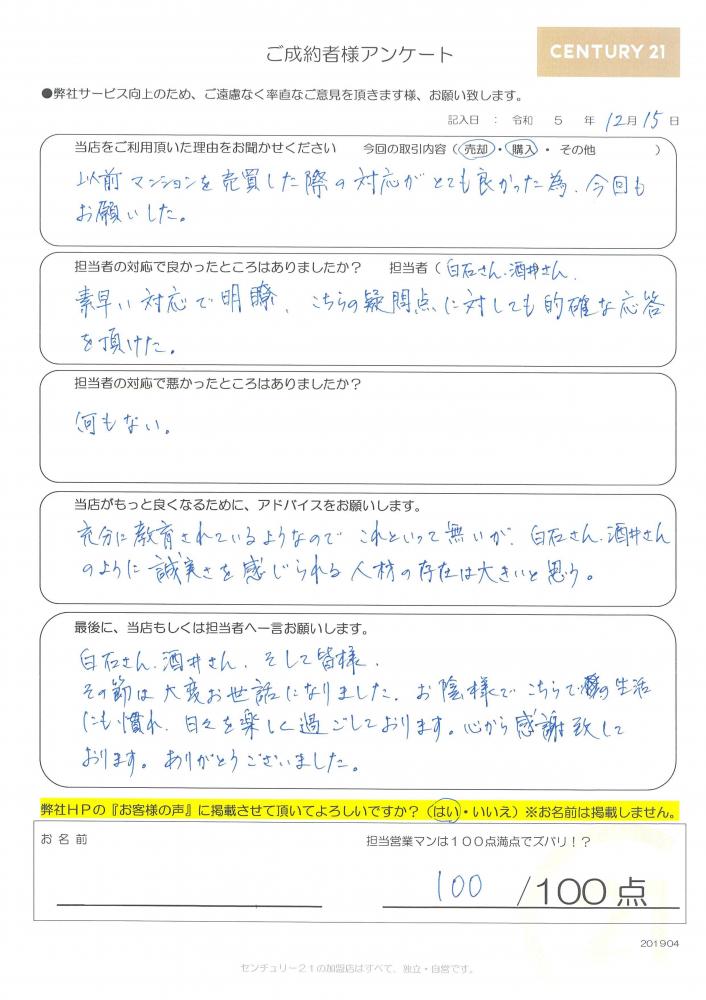 ご成約者様アンケート
CENTURY 21
●弊社サービス向上のため、ご遠慮なく率直なご意見を頂きます様、お願い致します。
記入日 : 令和 5 年 12月 15日
当店をご利用頂いた理由をお聞かせください 今回の取引内容（売却・購入・その他 ）
以前マンションを売買した際の対応がとても良かった為、今回も
お願いした。
担当者の対応で良かったところはありましたか? 担当者（白石さん、酒井さん、
素早い対応で明瞭、こちらの疑問点に対しても的確な応答
を頂けた。
担当者の対応で悪かったところはありましたか?
何もない。
当店がもっと良くなるために、アドバイスをお願いします。
充分に教育されているようなのでこれといって無いが、白石さん、酒井さん
のように誠実さを感じられる人材の存在は大きいと思う。
最後に、当店もしくは担当者へ一言お願いします。
白石さん、酒井さん、そして皆様、
その節は大変お世話になりました。お陰様でこちらでの生活
にも慣れ、日々を楽しく過ごしております。心から感謝致して
おります。ありがとうございました。
弊社HPの『お客様の声』に掲載させて頂いてよろしいですか?（はい・いいえ）※お名前は掲載しません。
お 名 前
担当営業マンは100点満点でズバリ!?
100 /100点
201904
センチュリー21の加盟店はすべて、独立・自営です。